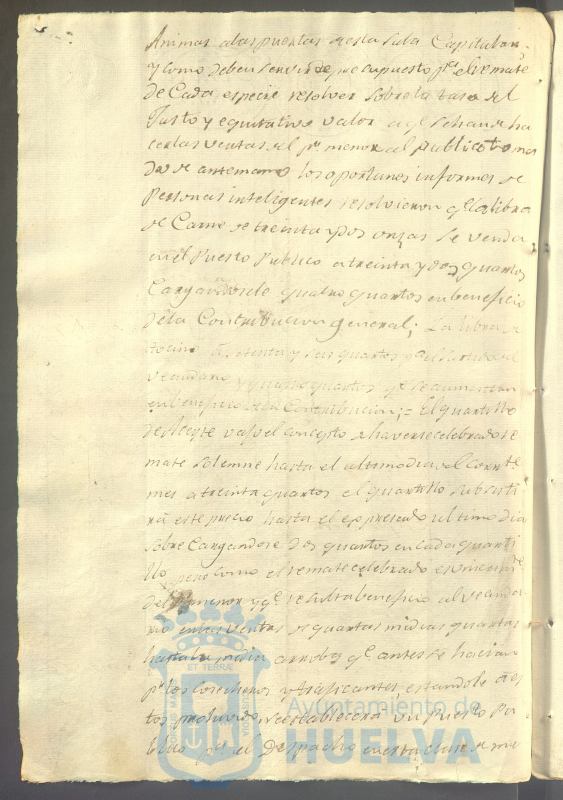 Animas a las puertas de esta Sala Capitular,
y como deben servir de presupuesto pa. el remate
de Cada especie resolver sobre la tasa del
Justo y equitativo valor a qe. se han de ha
cer las ventas al pr. menor al publico toma
dose de antemano los oportunos informes de
Personas inteligentes resolvieron qe. la libra
de Carne de treinta y dos onzas se venda
en el Puesto Publico a treinta y dos quartos
Cargandosele quatro quartos en beneficio
de la Contribucion general; La libra de
tocino a setenta y seis quartos
vecindario y quatro quartos qe. se aumentan
en beneficio de la Contribucion; = El quartillo
de Aceyte vajo el concepto de haverse celebrado re
mate solemne hasta el ultimo dia del corrte.
mes a treinta quartos el quartillo subsisti
rá este precio hasta el expresado ultimo dia
sobre Cargandose dos quartos en cada quarti
llo, pero como el remate celebrado es
del menor y qe. resulta beneficio al vecinda
rio en las ventas de quartas medias quartas
hasta la media arroba qe. antes se hacian
pr. los Cosecheros y traficantes, estandole a es
tos prohivido, se establecerá un Puesto Pu
blico pa. el despacho en esta clase de me
ET TERRAE
Ayuntamiento de
HUELVA